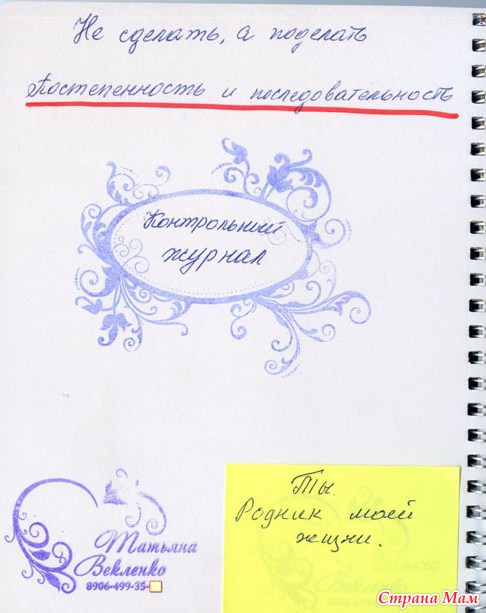 Не сделать, а поделать
Постепенность и последовательность
Контрольный
журнал
Ты.
Родник моей
жизни.
Татьяна
Векленко
8906-499-35-
Страна Мам